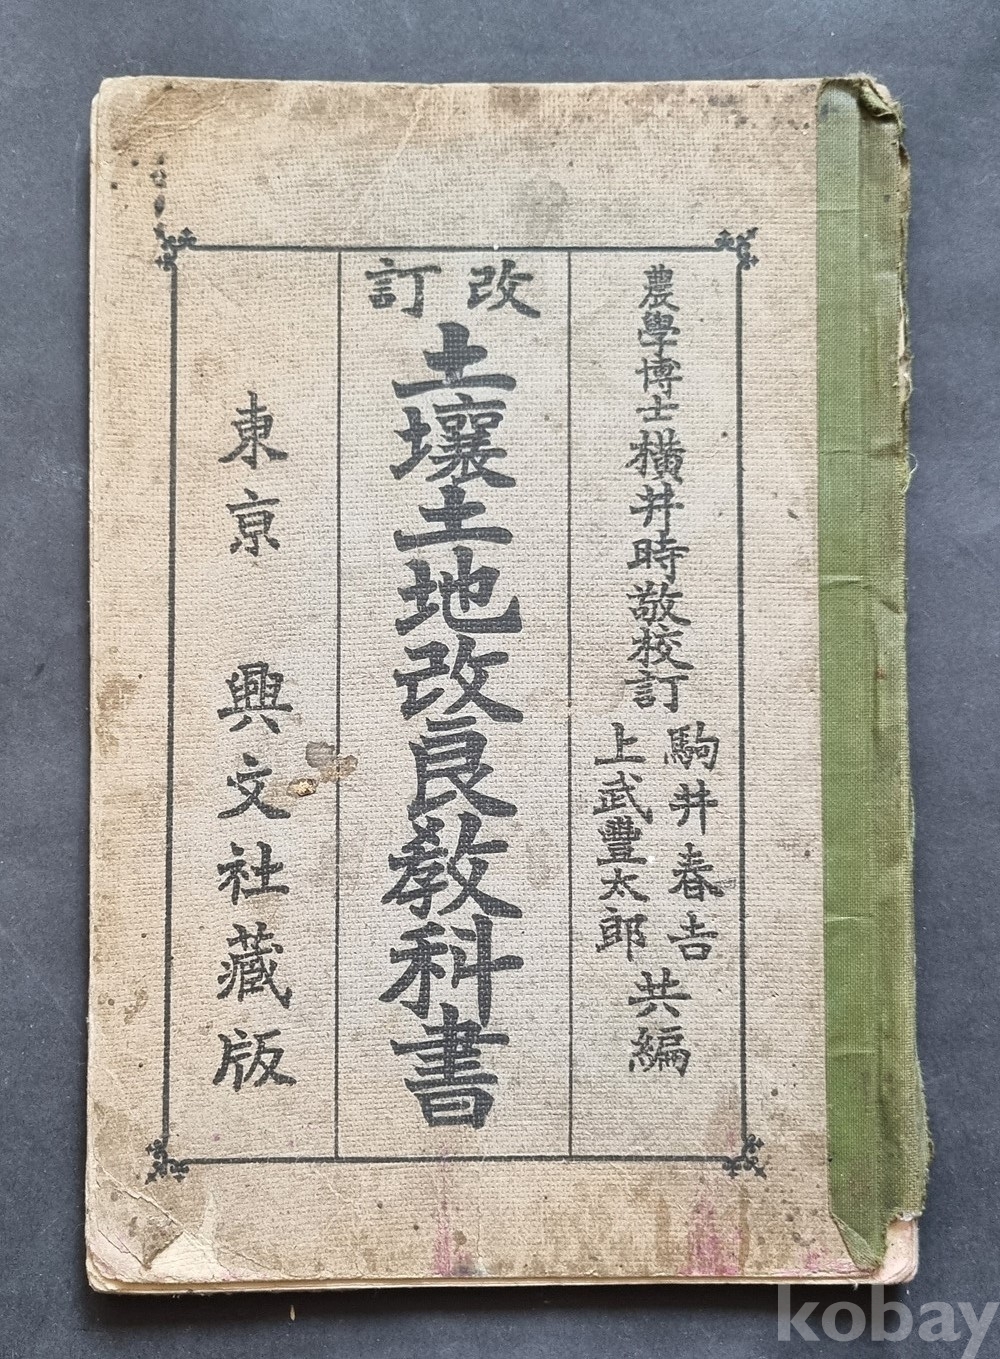 農學博士橫井時敬校訂
駒井春吉
上武豐太郎
共編
改訂
土壤土地改良敎科書
東京 興文社藏版
kobay